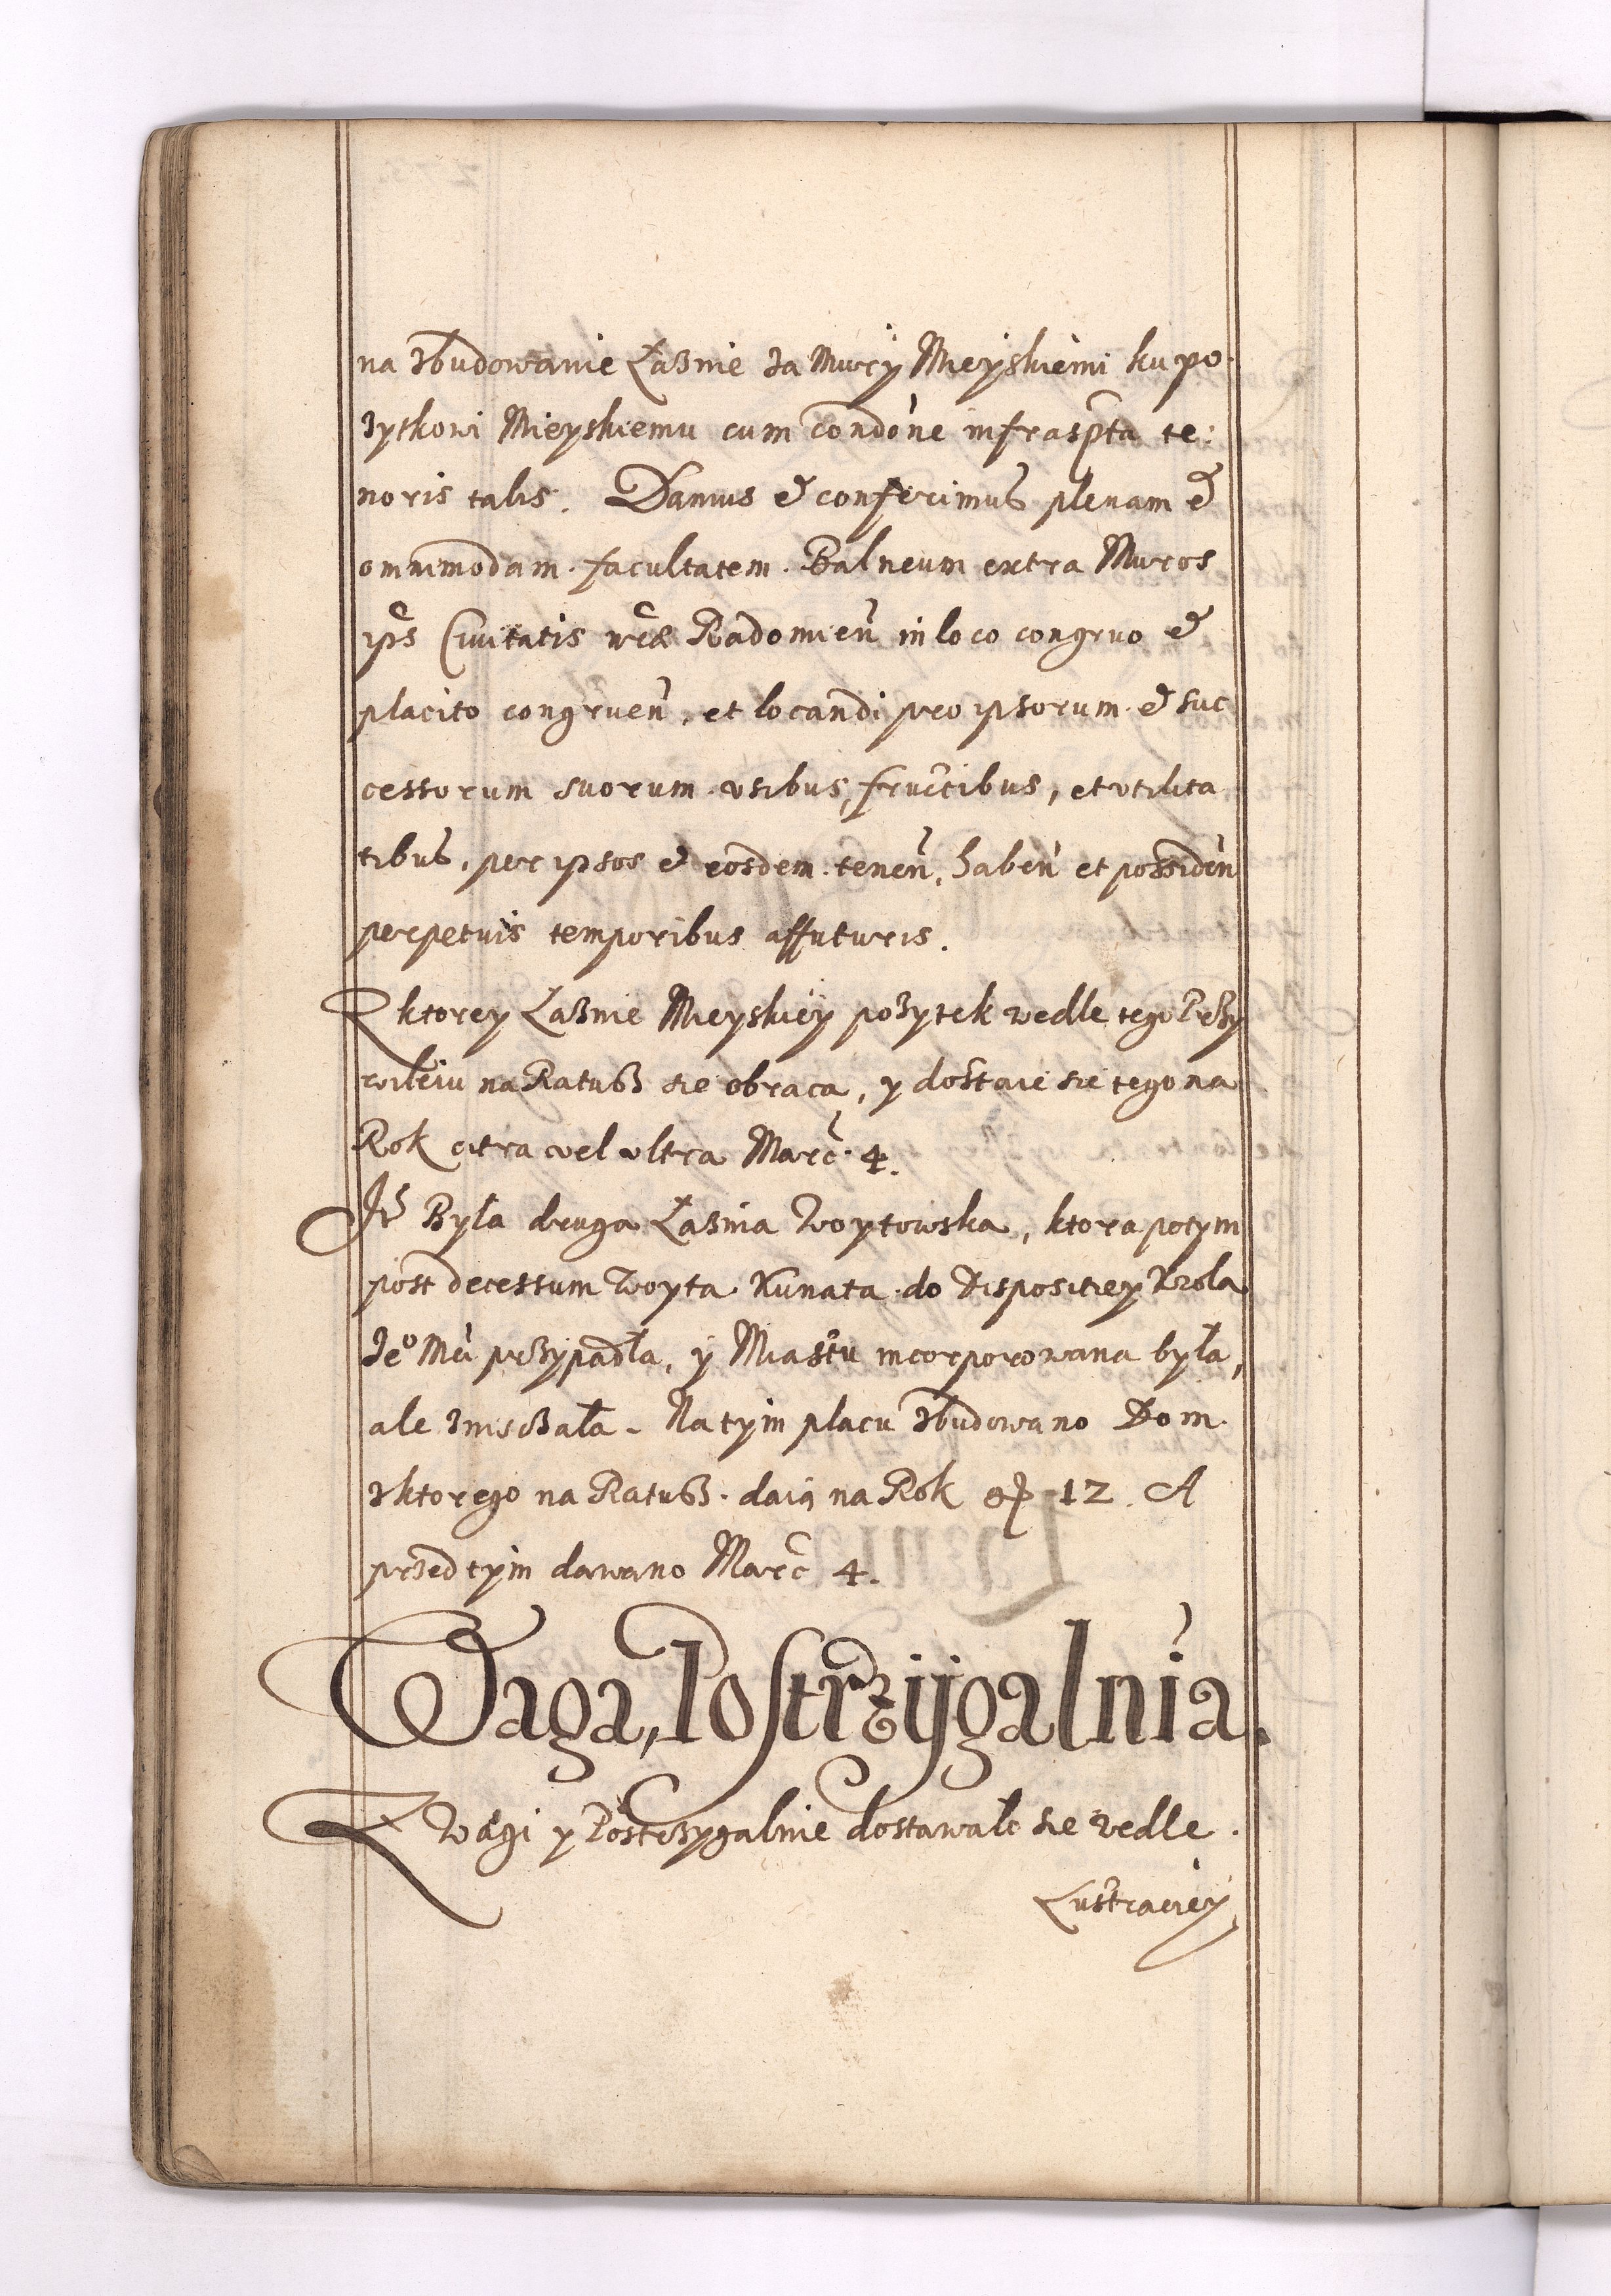 na zbudowanie Łaźnie za Mury Mieyskiemi ku po-
zytkowi Mieyskiemu cum condone infraspta te:
noris talis. Damus et conferimus plenam et
omnimodam facultatem Balneum extra Muros
ips Civitatis nrae Radomien in loco congruo et
placito congruen, et locandi pro ipsorum et suc
cessorum suorum usibus, fructibus, et utilita
tibus, per ipsos et eosdem tenen, haben et possiden
perpetuis temporibus affuturis.
Z ktorey Łaźnie Mieyskiey pożytek wedle tego Przy
wileiu na Ratusz sie obraca, y dostaie sie tego na
Rok citra vel ultra Marc. 4.
Ite Była druga Łaźnia Woytowska, ktora potym
post decessum Woyta Kunata do Dispositiey Krola
Je° Mci przypadła, y Miastu incorporowana była,
ale zniszczała. Na tym placu zbudowano Dom
z ktorego na Ratusz daią na Rok 12. A
przed tym dawano Marc 4.
Waga, Postrzÿgalnia.
Z Wagi y Postrzygalnie dostawało sie wedle
Lustraciey